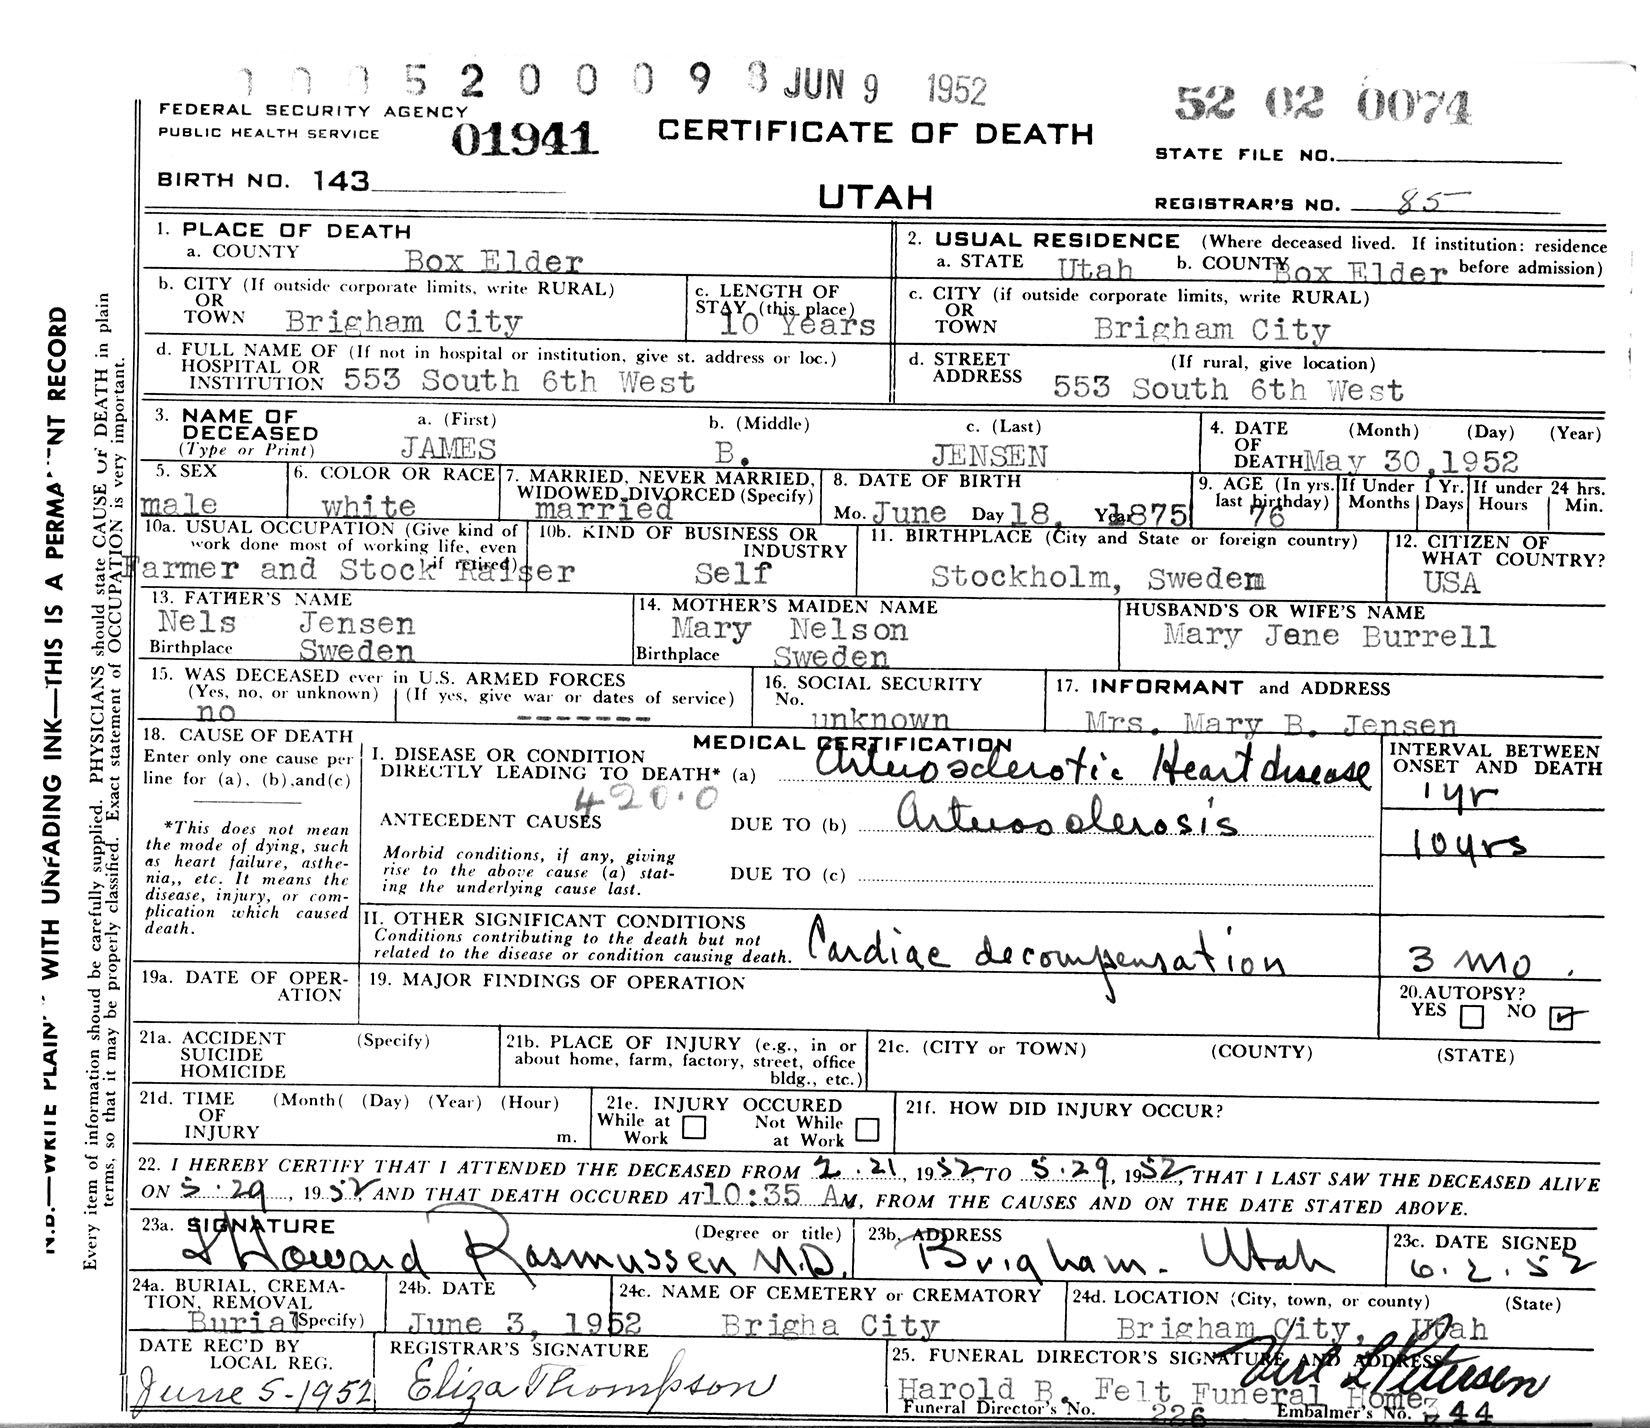 5 2 0 0 0 9 8 JUN 9 1952
52 02 0074
FEDERAL SECURITY AGENCY
PUBLIC HEALTH SERVICE
01941
CERTIFICATE OF DEATH
STATE FILE NO.
BIRTH NO. 143
UTAH
REGISTRAR'S NO. 85
N.B.—WRITE PLAIN WITH UNFADING INK—THIS IS A PERMA NT RECORD
Every item of information should be carefully supplied. PHYSICIANS should state CAUSE OF DEATH in plain
terms, so that it may be properly classified. Exact statement of OCCUPATION is very important.
1. PLACE OF DEATH
a. COUNTY Box Elder
2. USUAL RESIDENCE (Where deceased lived. If institution: residence
a. STATE Utah b. COUNTY Box Elder before admission)
b. CITY (If outside corporate limits, write RURAL)
OR
TOWN Brigham City
c. LENGTH OF
STAY (this place)
10 Years
c. CITY (if outside corporate limits, write RURAL)
OR
TOWN Brigham City
d. FULL NAME OF (If not in hospital or institution, give st. address or loc.)
HOSPITAL OR
INSTITUTION 553 South 6th West
d. STREET (If rural, give location)
ADDRESS 553 South 6th West
3. NAME OF DECEASED
(Type or Print)
a. (First) b. (Middle) c. (Last)
JAMES B. JENSEN
4. DATE (Month) (Day) (Year)
OF
DEATH May 30, 1952
5. SEX
male
6. COLOR OR RACE
white
7. MARRIED, NEVER MARRIED,
WIDOWED, DIVORCED (Specify)
married
8. DATE OF BIRTH
Mo. June Day 18, Year 1875
9. AGE (In yrs. last birthday)
76
If Under 1 Yr.
Months Days
If under 24 hrs.
Hours Min.
10a. USUAL OCCUPATION (Give kind of
work done most of working life, even
if retired)
Farmer and Stock Raiser
10b. KIND OF BUSINESS OR
INDUSTRY
Self
11. BIRTHPLACE (City and State or foreign country)
Stockholm, Sweden
12. CITIZEN OF
WHAT COUNTRY?
USA
13. FATHER'S NAME
Nels Jensen
Birthplace Sweden
14. MOTHER'S MAIDEN NAME
Mary Nelson
Birthplace Sweden
HUSBAND'S OR WIFE'S NAME
Mary Jane Burrell
15. WAS DECEASED ever in U.S. ARMED FORCES
(Yes, no, or unknown) (If yes, give war or dates of service)
no -------
16. SOCIAL SECURITY
No.
unknown
17. INFORMANT and ADDRESS
Mrs. Mary B. Jensen
18. CAUSE OF DEATH
Enter only one cause per
line for (a), (b),and(c)
*This does not mean
the mode of dying, such
as heart failure, asthe-
nia,, etc. It means the
disease, injury, or com-
plication which caused
death.
MEDICAL CERTIFICATION
I. DISEASE OR CONDITION
DIRECTLY LEADING TO DEATH* (a) Arteriosclerotic Heart disease
420.0
ANTECEDENT CAUSES DUE TO (b) Arteriosclerosis
Morbid conditions, if any, giving
rise to the above cause (a) stat-
ing the underlying cause last.
DUE TO (c)
INTERVAL BETWEEN
ONSET AND DEATH
1 yr
10 yrs
II. OTHER SIGNIFICANT CONDITIONS
Conditions contributing to the death but not
related to the disease or condition causing death.
Cardiac decompensation
3 mo.
19a. DATE OF OPER-
ATION
19. MAJOR FINDINGS OF OPERATION
20. AUTOPSY?
YES NO
21a. ACCIDENT (Specify)
SUICIDE
HOMICIDE
21b. PLACE OF INJURY (e.g., in or
about home, farm, factory, street, office
bldg., etc.)
21c. (CITY or TOWN) (COUNTY) (STATE)
21d. TIME (Month( (Day) (Year) (Hour)
OF
INJURY m.
21e. INJURY OCCURED
While at Work Not While at Work
21f. HOW DID INJURY OCCUR?
22. I HEREBY CERTIFY THAT I ATTENDED THE DECEASED FROM 2.21, 1952, TO 5.29, 1952, THAT I LAST SAW THE DECEASED ALIVE
ON 5.29, 1952 AND THAT DEATH OCCURED AT 10:35 AM, FROM THE CAUSES AND ON THE DATE STATED ABOVE.
23a. SIGNATURE (Degree or title)
Howard Rasmussen M.D.
23b. ADDRESS
Brigham. Utah
23c. DATE SIGNED
6.2.52
24a. BURIAL, CREMA-
TION, REMOVAL
(Specify) Burial
24b. DATE
June 3, 1952
24c. NAME OF CEMETERY or CREMATORY
Brigha City
24d. LOCATION (City, town, or county) (State)
Brigham City, Utah
DATE REC'D BY
LOCAL REG.
June 5-1952
REGISTRAR'S SIGNATURE
Eliza Thompson
25. FUNERAL DIRECTOR'S SIGNATURE AND ADDRESS
Petersen
Harold B. Felt Funeral Home
Funeral Director's No. 226 Embalmer's No. 344